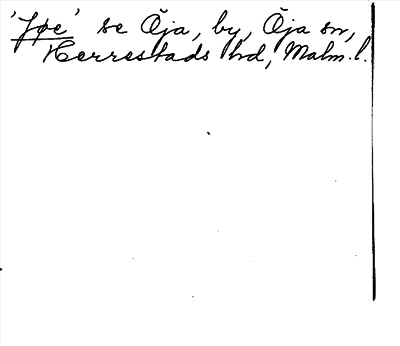 'Jøe' se Öja, by, Öja sn,
Herrestads hd, Malm. l.